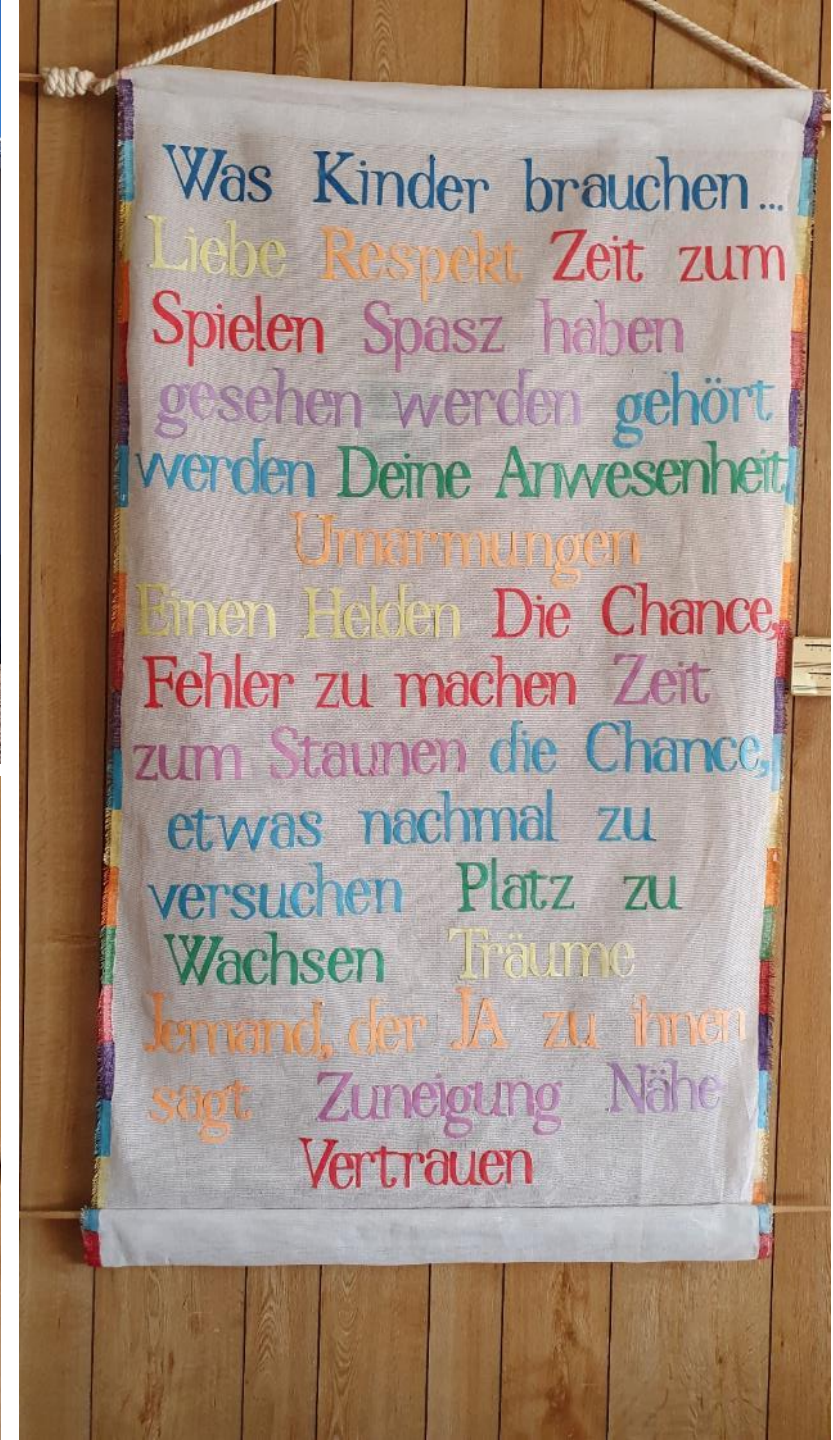 Was Kinder brauchen...
Liebe Respekt Zeit zum
Spielen Spasz haben
gesehen werden gehört
werden Deine Anwesenheit
Umarmungen
Einen Helden Die Chance,
Fehler zu machen Zeit
zum Staunen die Chance,
etwas nachmal zu
versuchen Platz zu
Wachsen Träume
Jemand, der JA zu ihnen
sagt Zuneigung Nähe
Vertrauen